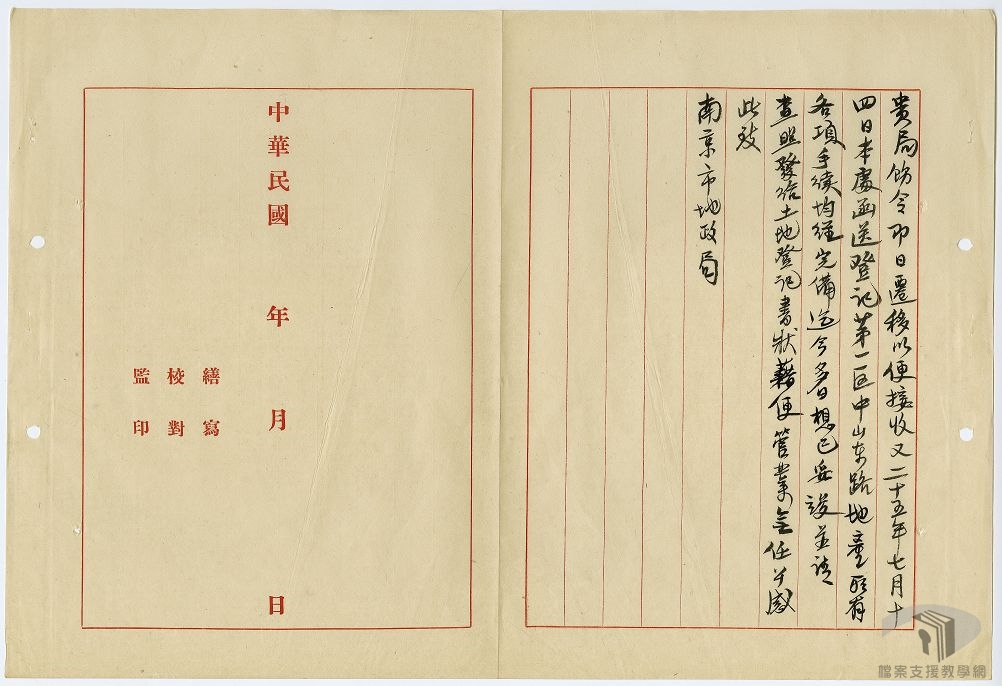 貴局飭令即日遷移以便接收又二十五年七月十
四日本處函送登記第一區中山東路地產所有
各項手續均經完備迄今多日想已妥竣並請
查照發給土地登記書狀藉便管業無任公感
此致
南京市地政局
中華民國 年 月 日
繕寫
校對
監印
檔案支援教學網